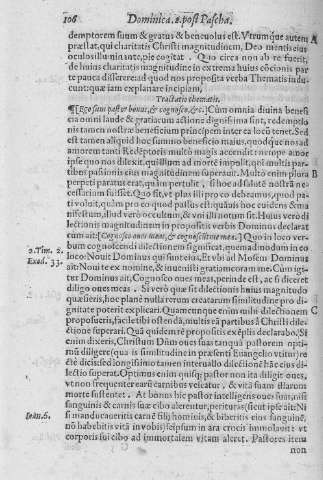 106 Dominica. 2. post Pascha.
demptorem suum & gratus & beneuolus est. Vtrumque autem A
præstat, qui charitatis Christi magnitudinem, Deo mentis eius
oculos illuminante, pie cogitat. Quo circa non ab re fuerit,
de huius charitatis magnitudine in extrema huius cōcionis par
te pauca disserere: ad quod nos proposita verba Thematis indu
cunt: quæ iam explanare incipiam.
Tractatio thematis.
Ego sum pastor bonus, & cognosco, &c. Cum omnia diuina benefi
cia omni laude & gratiarum actione dignissima sint, redemptio
nis tamen nostræ beneficium principem inter ea locū tenet. Sed
est tamen aliquid hoc summo beneficio maius, quod que nos ad
amorem tanti Redēptoris multò magis accendit: nempe amor
ipse quo nos dilexit, qui illum ad mortē impulit, qui multis par
tibus passionis eius magnitudinem superauit. Multo enim plura B
perpeti paratus erat, quàm pertulit, si hoc ad salutē nostrā ne-
cessarium fuisset. Quo fit, vt plus illi pro eo debeamus, quod pa-
ti voluit, quàm pro eo quod passus est: quāuis hoc euidens & ma
nifestum, illud verò occultum, & vni illi notum sit. Huius verò di
lectionis magnitudinem in propositis verbis Dominus declarat
cum ait: Cognosco oues meas, & cognoscunt me meæ. Quo in loco ver-
bum cognoscendi dilectionem significat, quemadmodum in eo
2. Tim. 2. loco: Nouit Dominus qui sunt eius. Et vbi ad Mosem Dominus
Exod. 33. ait: Noui te ex nomine, & inuenisti gratiam coram me. Cùm igi-
tur Dominus ait, Cognosco oues meas, perinde est, ac si diceret
diligo oues meas. Si verò quæ sit dilectionis huius magnitudo
quæseris, hoc planè nulla rerum creatarum similitudine pro di-
gnitate poterit explicari: Quamcunque enim mihi dilectionem C
proposueris, facile tibi ostendā, multis eā partibus à Christi dile-
ctione superari. Quā quidem rē propositis exēplis declarabo. Si
enim dixeris, Christum Dūm oues suas tanquā pastorem opti-
mū diligere (qua is similitudine in præsenti Euangelio vtitur) re
ctè dicis: sed longissimo tamen interuallo dilectione hāc eius di-
lectio superat. Optimus enim quisq; pastor non ita diligit oues,
vt non frequenter earū carnibus vescatur, & vita suam illarum
morte sustentet. At bonus hic pastor intelligens oues suas, nisi
sanguinis & carnis suæ cibo alerentur, perituras (sicut ipse ait: Ni
Ioan. 6. si manducaueritis carnē filij hominis, & biberitis eius sanguinē,
nō habebitis vitā in vobis) seipsum in ara crucis immolauit vt
corporis sui cibo ad immortalem vitam aleret. Pastores item
non